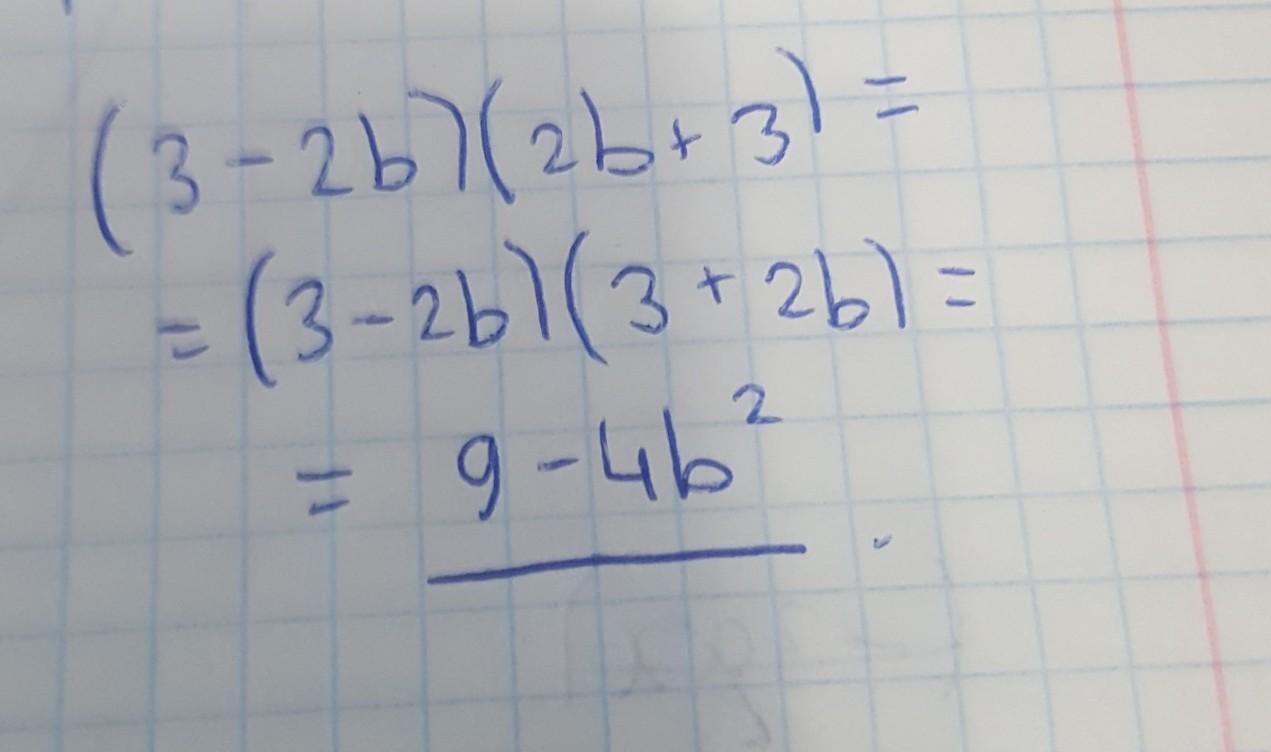 (3 - 2b)(2b + 3) =
= (3 - 2b)(3 + 2b) =
= 9 - 4b²